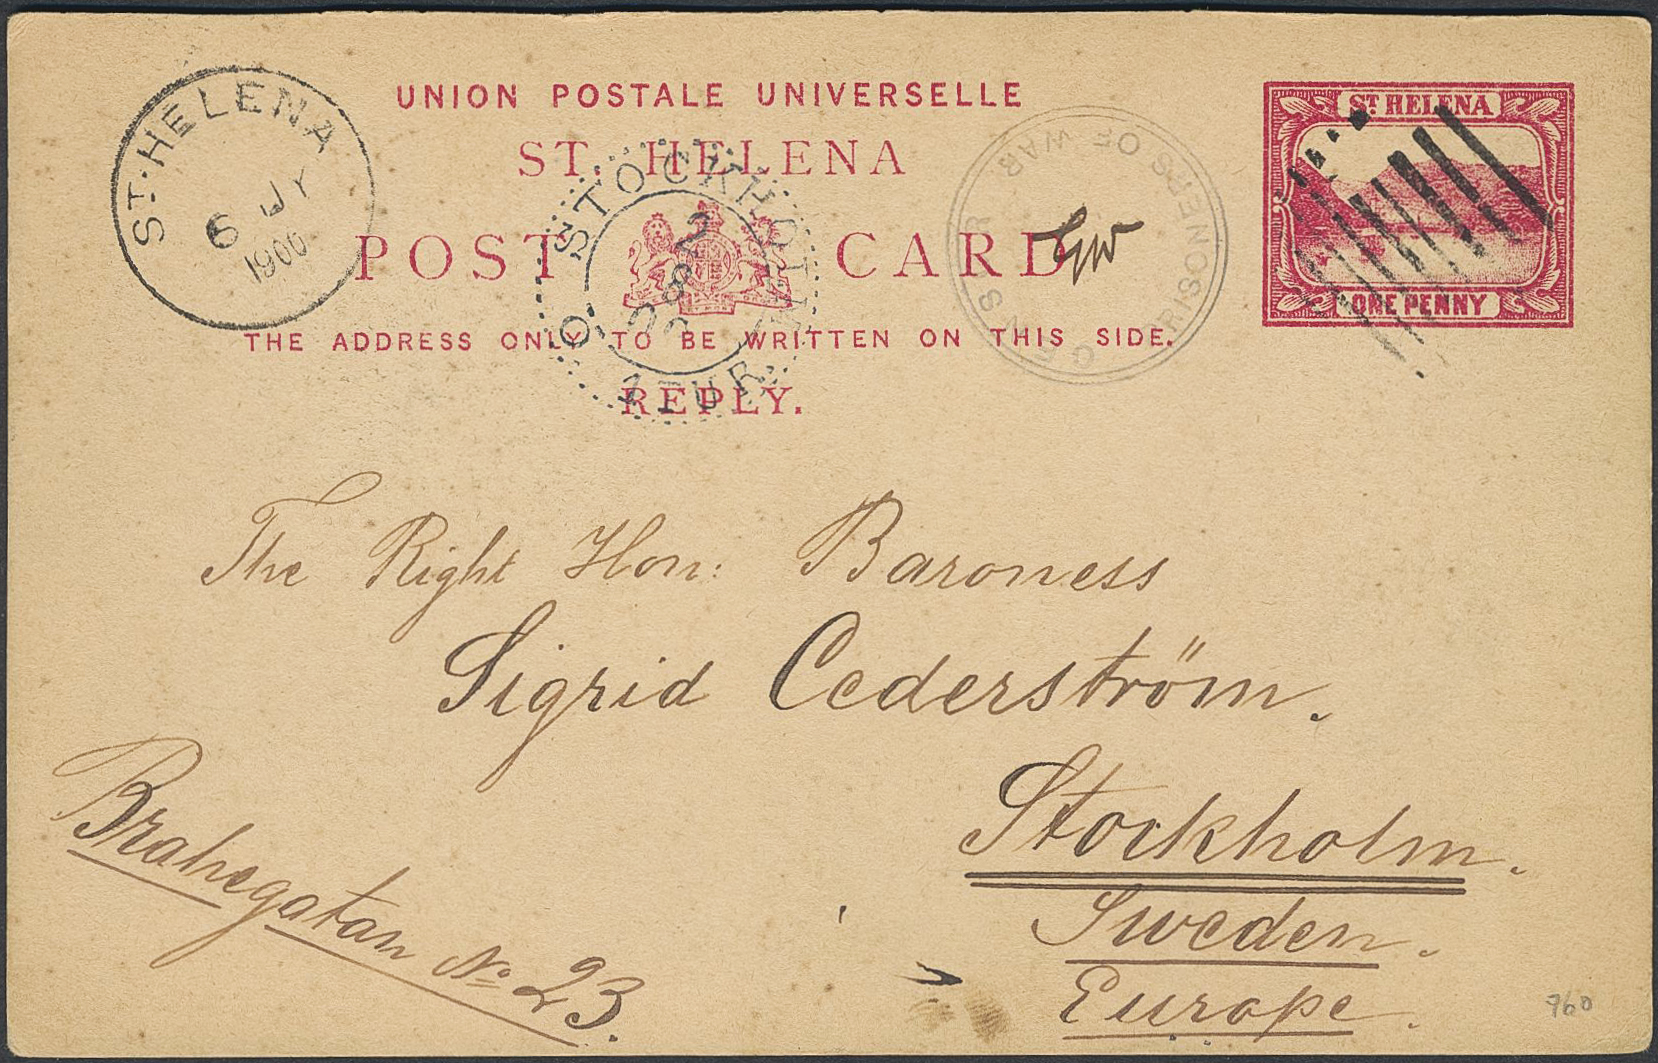 UNION POSTALE UNIVERSELLE
ST. HELENA
POST CARD
THE ADDRESS ONLY TO BE WRITTEN ON THIS SIDE.
REPLY.
ST. HELENA
6 JY
1900
STOCKHOLM
2
8
00
1 TUR.
PRISONERS OF WAR
CENSOR
GW
ST HELENA
ONE PENNY
The Right Hon: Baroness
Sigrid Cederström.
Stockholm.
Sweden.
Europe.
Brahegatan No 23.
960